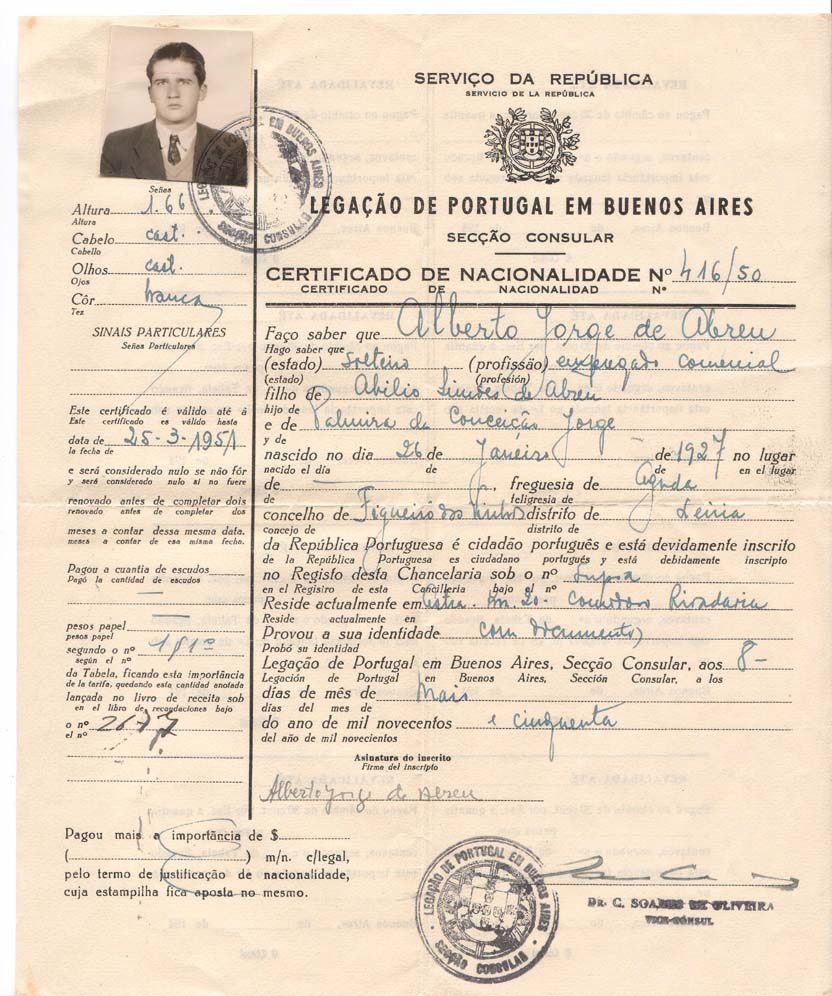 SERVIÇO DA REPÚBLICA
SERVICIO DE LA REPÚBLICA
LEGAÇÃO DE PORTUGAL EM BUENOS AIRES
SECÇÃO CONSULAR
CERTIFICADO DE NACIONALIDADE Nº 416/50
CERTIFICADO DE NACIONALIDAD Nº
LEGAÇÃO DE PORTUGAL EM BUENOS AIRES
SECÇÃO CONSULAR
Señas
Altura 1.66
Altura
Cabelo cast.
Cabello
Olhos cast.
Ojos
Côr branca
Tez
SINAIS PARTICULARES
Señas Particulares
Este certificado é válido até á
Este certificado es válido hasta
data de 25-3-1951
la fecha de
e será considerado nulo se não fôr
y será considerado nulo si no fuere
renovado antes de completar dois
renovado antes de completar dos
meses a contar dessa mesma data.
meses a contar de esa misma fecha.
Pagou a cuantia de escudos
Pagó la cantidad de escudos
pesos papel
pesos papel
segundo o nº
según el nº
da Tabela, ficando esta importância
de la tarifa, quedando esta cantidad anotada
lançada no livro de receita sob
en el libro de recaudaciones bajo
o nº 2677
el nº
Faço saber que Alberto Jorge de Abreu
Hago saber que
(estado) solteiro (profissão) empregado comercial
(estado) (profesión)
filho de Abilio Simões de Abreu
hijo de
e de Palmira da Conceição Jorge
y de
nascido no dia 26 de Janeiro de 1927 no lugar
nacido el día de de en el lugar
de freguesia de Aguda
de feligresia de
concelho de Figueiró dos Vinhos distrito de Leiria
concejo de distrito de
da República Portuguesa é cidadão português e está devidamente inscrito
de la República Portuguesa es ciudadano portugués y está debidamente inscripto
no Registo desta Chancelaria sob o nº supra
en el Registro de esta Cancilleria bajo el nº
Reside actualmente em Comodoro Rivadavia
Reside actualmente en
Provou a sua identidade com documentos
Probó su identidad
Legação de Portugal em Buenos Aires, Secção Consular, aos 8-
Legación de Portugal en Buenos Aires, Sección Consular, a los
dias de mês de Maio
días del mes de
do ano de mil novecentos e cinquenta
del año de mil novecientos
Asinatura do inscrito
Firma del inscripto
Alberto Jorge de Abreu
Pagou mais a importância de $
( ) m/n. c/legal,
pelo termo de justificação de nacionalidade,
cuja estampilha fica aposta no mesmo.
LEGAÇÃO DE PORTUGAL EM BUENOS AIRES
SECÇÃO CONSULAR
DR. C. SOARES DE OLIVEIRA
VICE-CONSUL